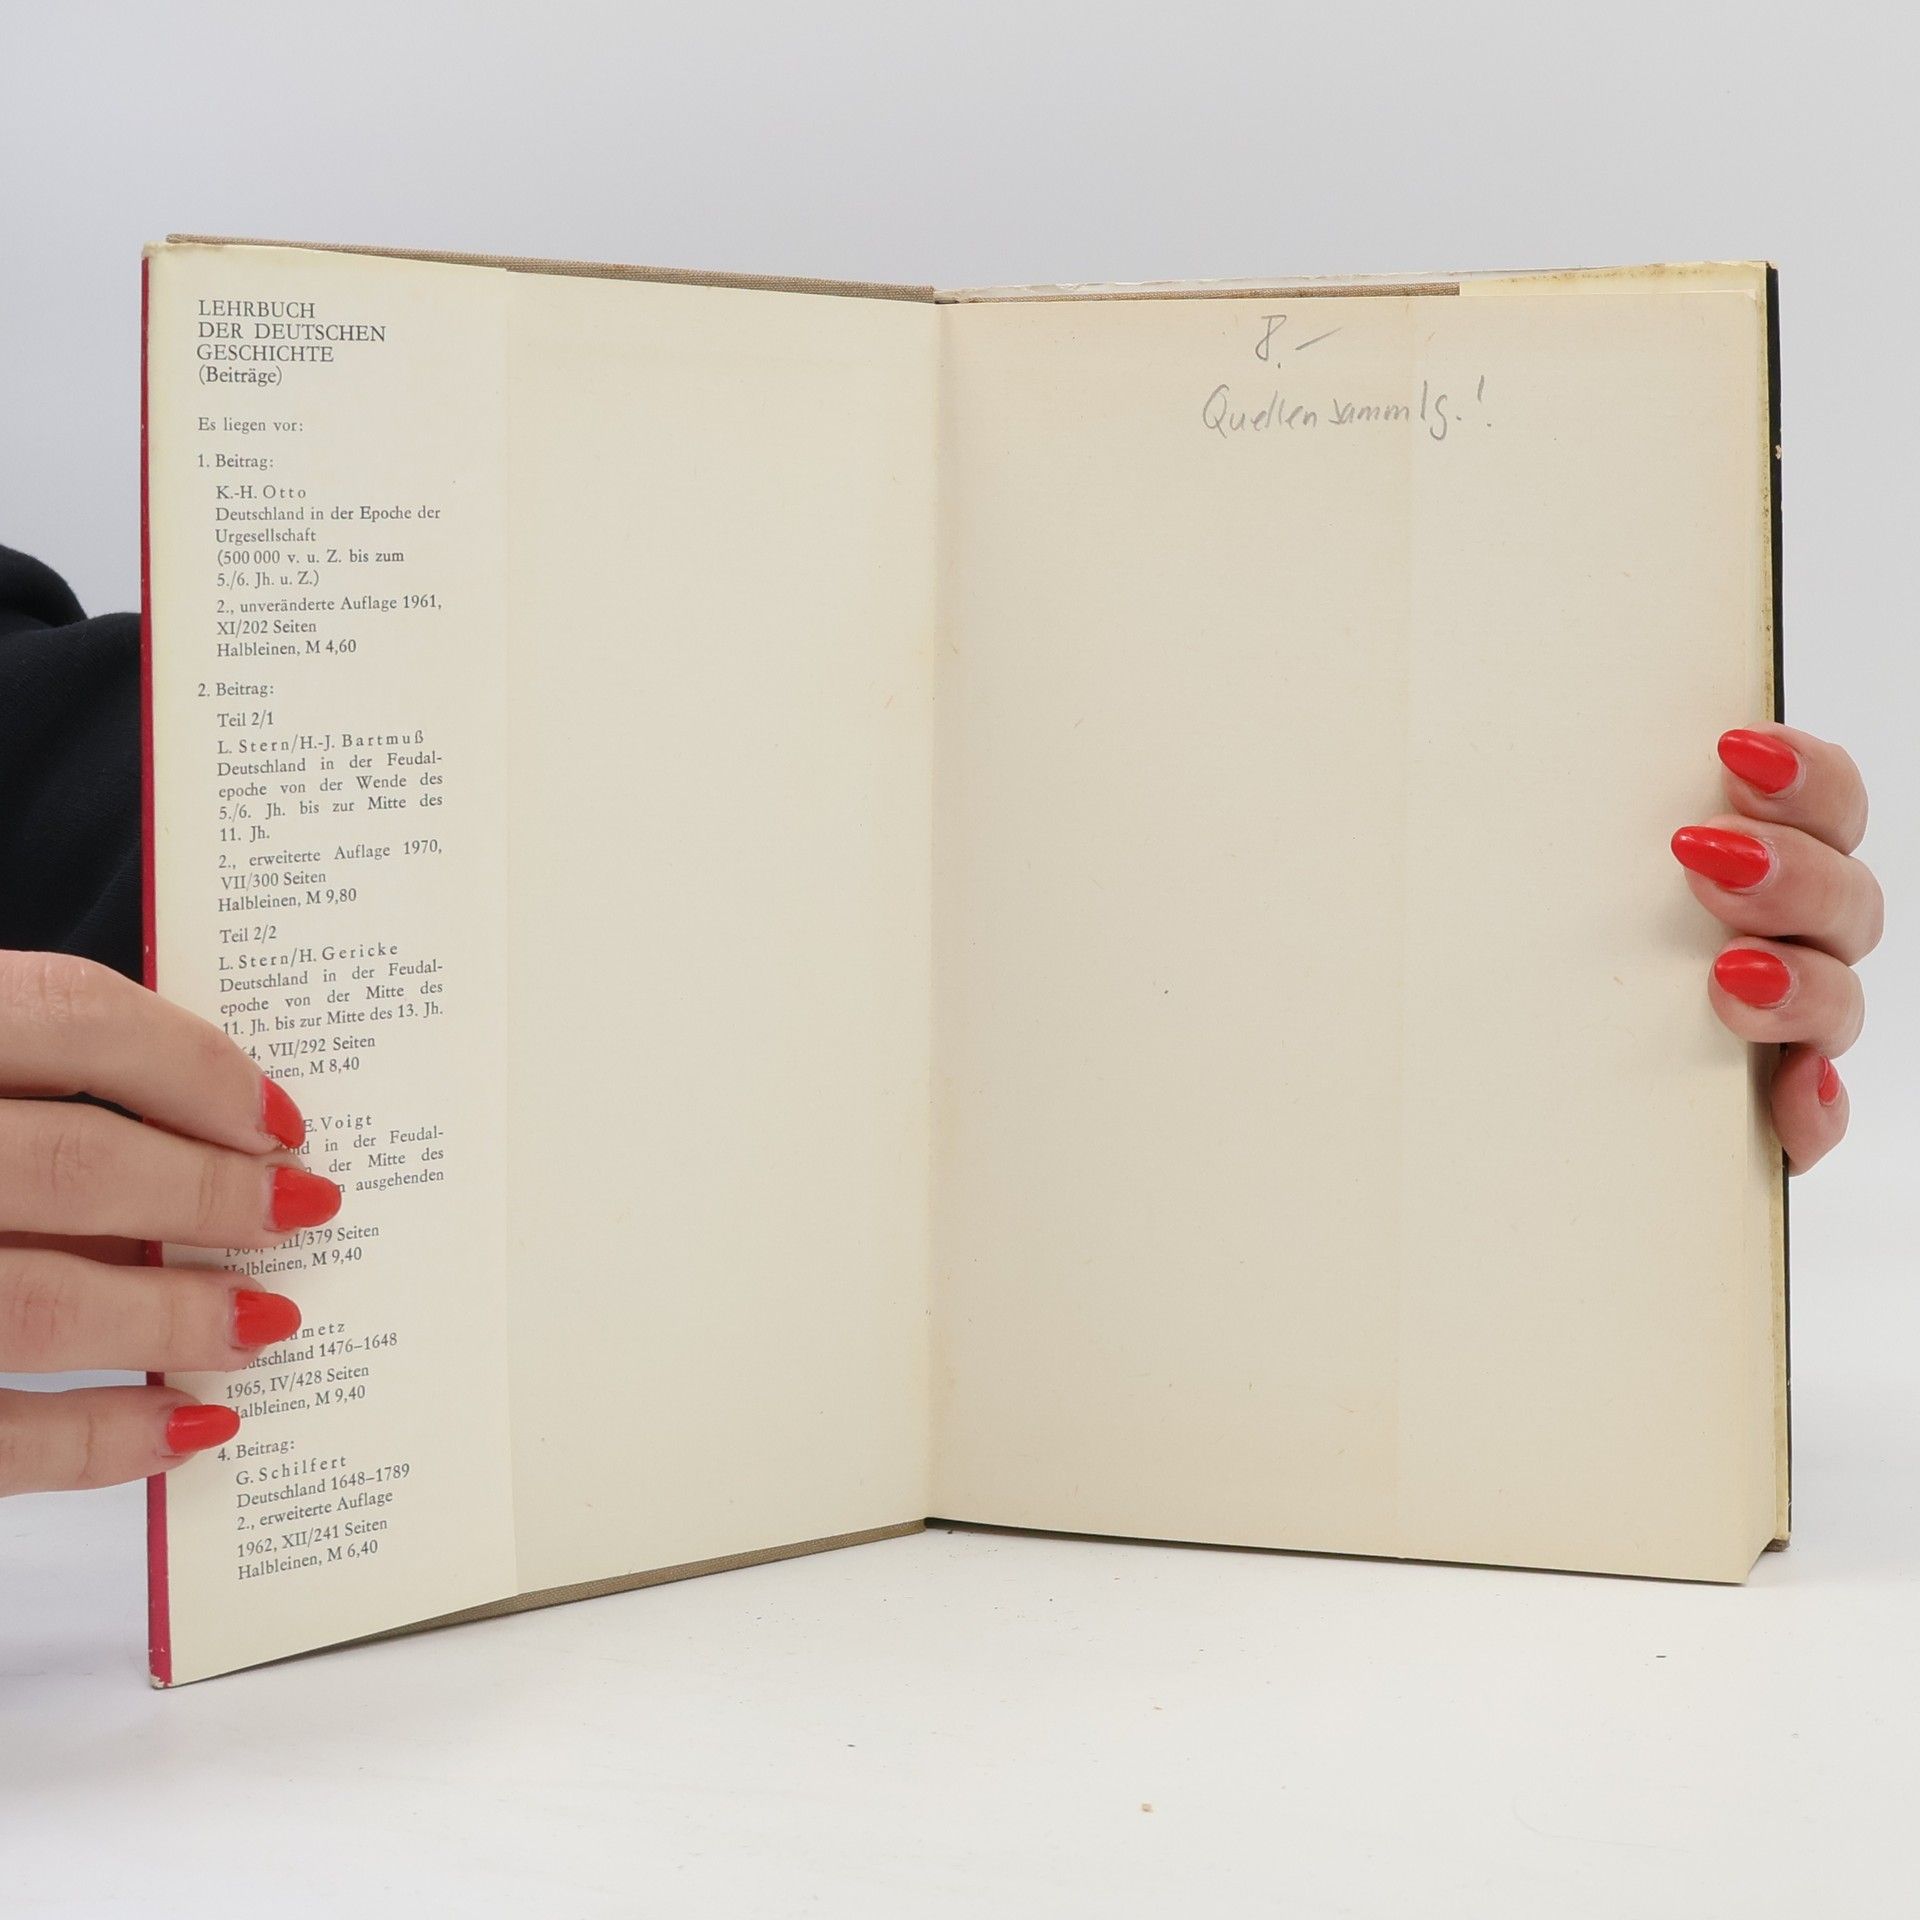 LEHRBUCH
DER DEUTSCHEN
GESCHICHTE
(Beiträge)
Es liegen vor:
1. Beitrag:
K.-H. Otto
Deutschland in der Epoche der
Urgesellschaft
(500 000 v. u. Z. bis zum
5./6. Jh. u. Z.)
2., unveränderte Auflage 1961,
XI/202 Seiten
Halbleinen, M 4,60
2. Beitrag:
Teil 2/1
L. Stern/H.-J. Bartmuß
Deutschland in der Feudal-
epoche von der Wende des
5./6. Jh. bis zur Mitte des
11. Jh.
2., erweiterte Auflage 1970,
VII/300 Seiten
Halbleinen, M 9,80
Teil 2/2
L. Stern/H. Gericke
Deutschland in der Feudal-
epoche von der Mitte des
11. Jh. bis zur Mitte des 13. Jh.
VII/292 Seiten
M 8,40
E. Voigt
in der Feudal-
der Mitte des
ausgehenden
VIII/379 Seiten
Halbleinen, M 9,40
Deutschland 1476–1648
1965, IV/428 Seiten
Halbleinen, M 9,40
4. Beitrag:
G. Schilfert
Deutschland 1648–1789
2., erweiterte Auflage
1962, XII/241 Seiten
Halbleinen, M 6,40
8.–
Quellensammlg.!